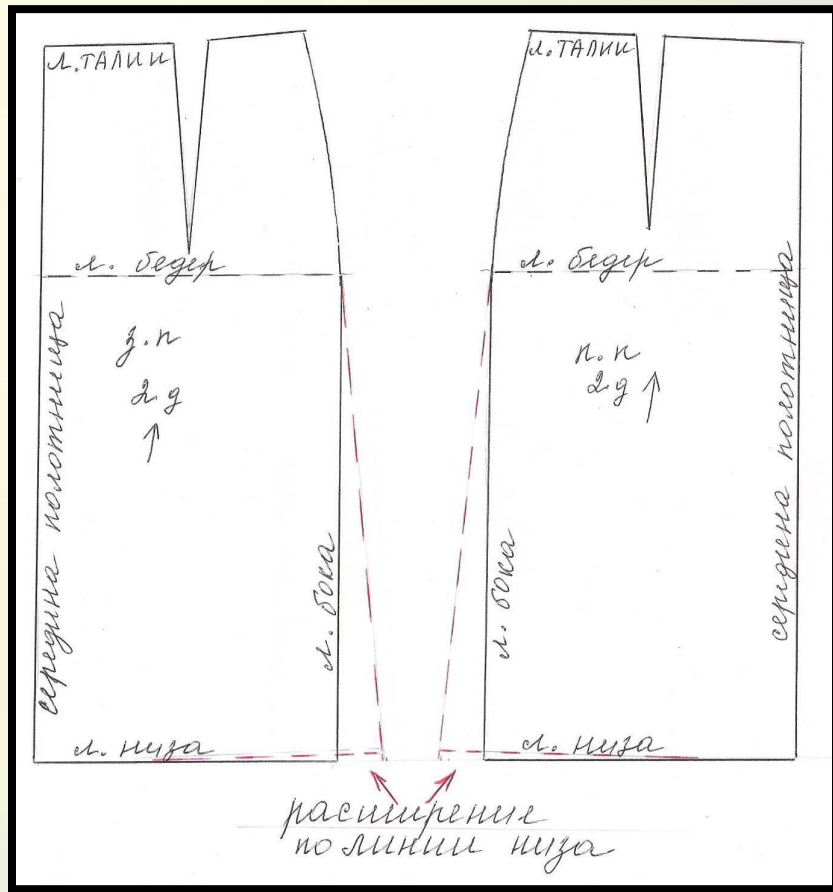 л. ТАЛИИ
л. бедер
з.п
2 д
середина полотнища
л. бока
л. низа
л. ТАЛИИ
л. бедер
п.п
2 д
середина полотнища
л. бока
л. низа
расширение
по линии низа